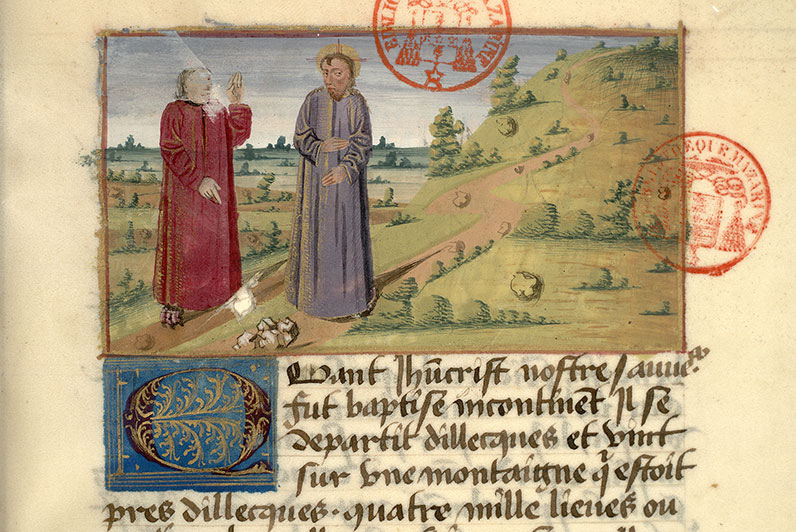 BIBLIOTHEQUE MAZARINE
Quant Jhūcrist nostre sauueᵘʳ
fut baptise incontinent Il se
departit dillecques et vint
sur vne montaigne q̄ estoit
pres dillecques. quatre mille lieues ou